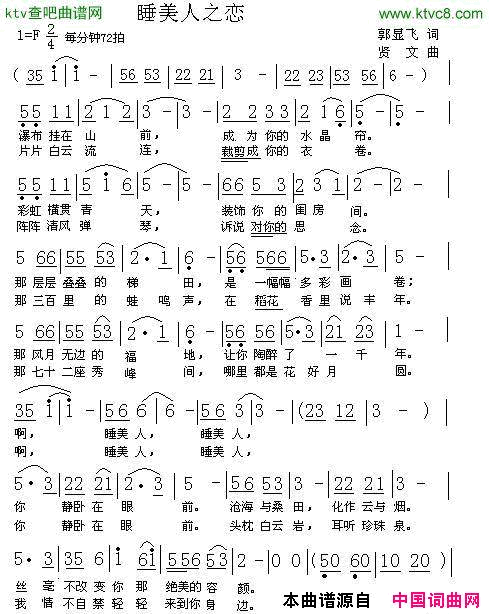 ktv查吧曲谱网
睡美人之恋
www.ktvc8.com
1=F 2/4 每分钟72拍
郭显飞 词
贤 文 曲
( 35 i | i - | 56 53 | 56 53 | 5 - | 5 - ) |
55 11 | 2·1 61 | 2 - | 2 - | 2 23 | 3 3 | 2 16 | 2 - |
瀑布 挂在 山 前, 成 为 你的 水 晶 帘。
片片 白云 流 连, 裁剪 成 你的 衣 卷。
55 11 | 5 i 6 | 5 - | 5 - | 66 5 3 | 2 3 1 | 2 - | 2 - |
彩虹 横贯 青 天, 装饰 你 的 闺 房 间。
阵阵 清风 弹 琴, 诉说 对你的 思 念。
5 66 | 55 53 | 2· i | 2 - | 5 56 | 566 | 5·3 | 2·3 | 5 - |
那 层层 叠叠 的 梯 田, 是 一幅幅 多 彩 画 卷;
那 三百 里 的 蛙 鸣 声, 在 稻花 香 里 说 丰 年。
5 66 | 55 53 | 2· 1 | 2 - | 56 56 | 66 | 5·3 | 21 23 | 1 - |
那 风月 无边 的 福 地, 让你 陶醉 了 一 千 年。
那 七十 二座 秀 峰 间, 哪里 都是 花 好 月 圆。
35 i | i - | 5 6 6 | 6 - | 5 6 3 | 3 - | (23 12 | 3 - ) |
啊, 睡美 人, 睡美 人,
啊, 睡美 人, 睡美 人,
5· 3 | 5 6 i | 6·3 | 5 - | 55 53 | 2 3 | 55 53 | 2 3 |
你 静卧 在 眼 前。 沧海 与 桑 田, 化作 云 与 烟。
你 静卧 在 眼 前。 头枕 白云 岩, 耳听 珍珠 泉。
5· 3 | 35 5 | 5 6 i | 555 53 | 2 - | 0 0 | (50 60 | 10 20 ) |
丝 毫 不改 变 你 那 绝美的 容 颜。
我 情 不自 禁 轻 轻 来到你 身 边。
本曲谱源自 中国词曲网